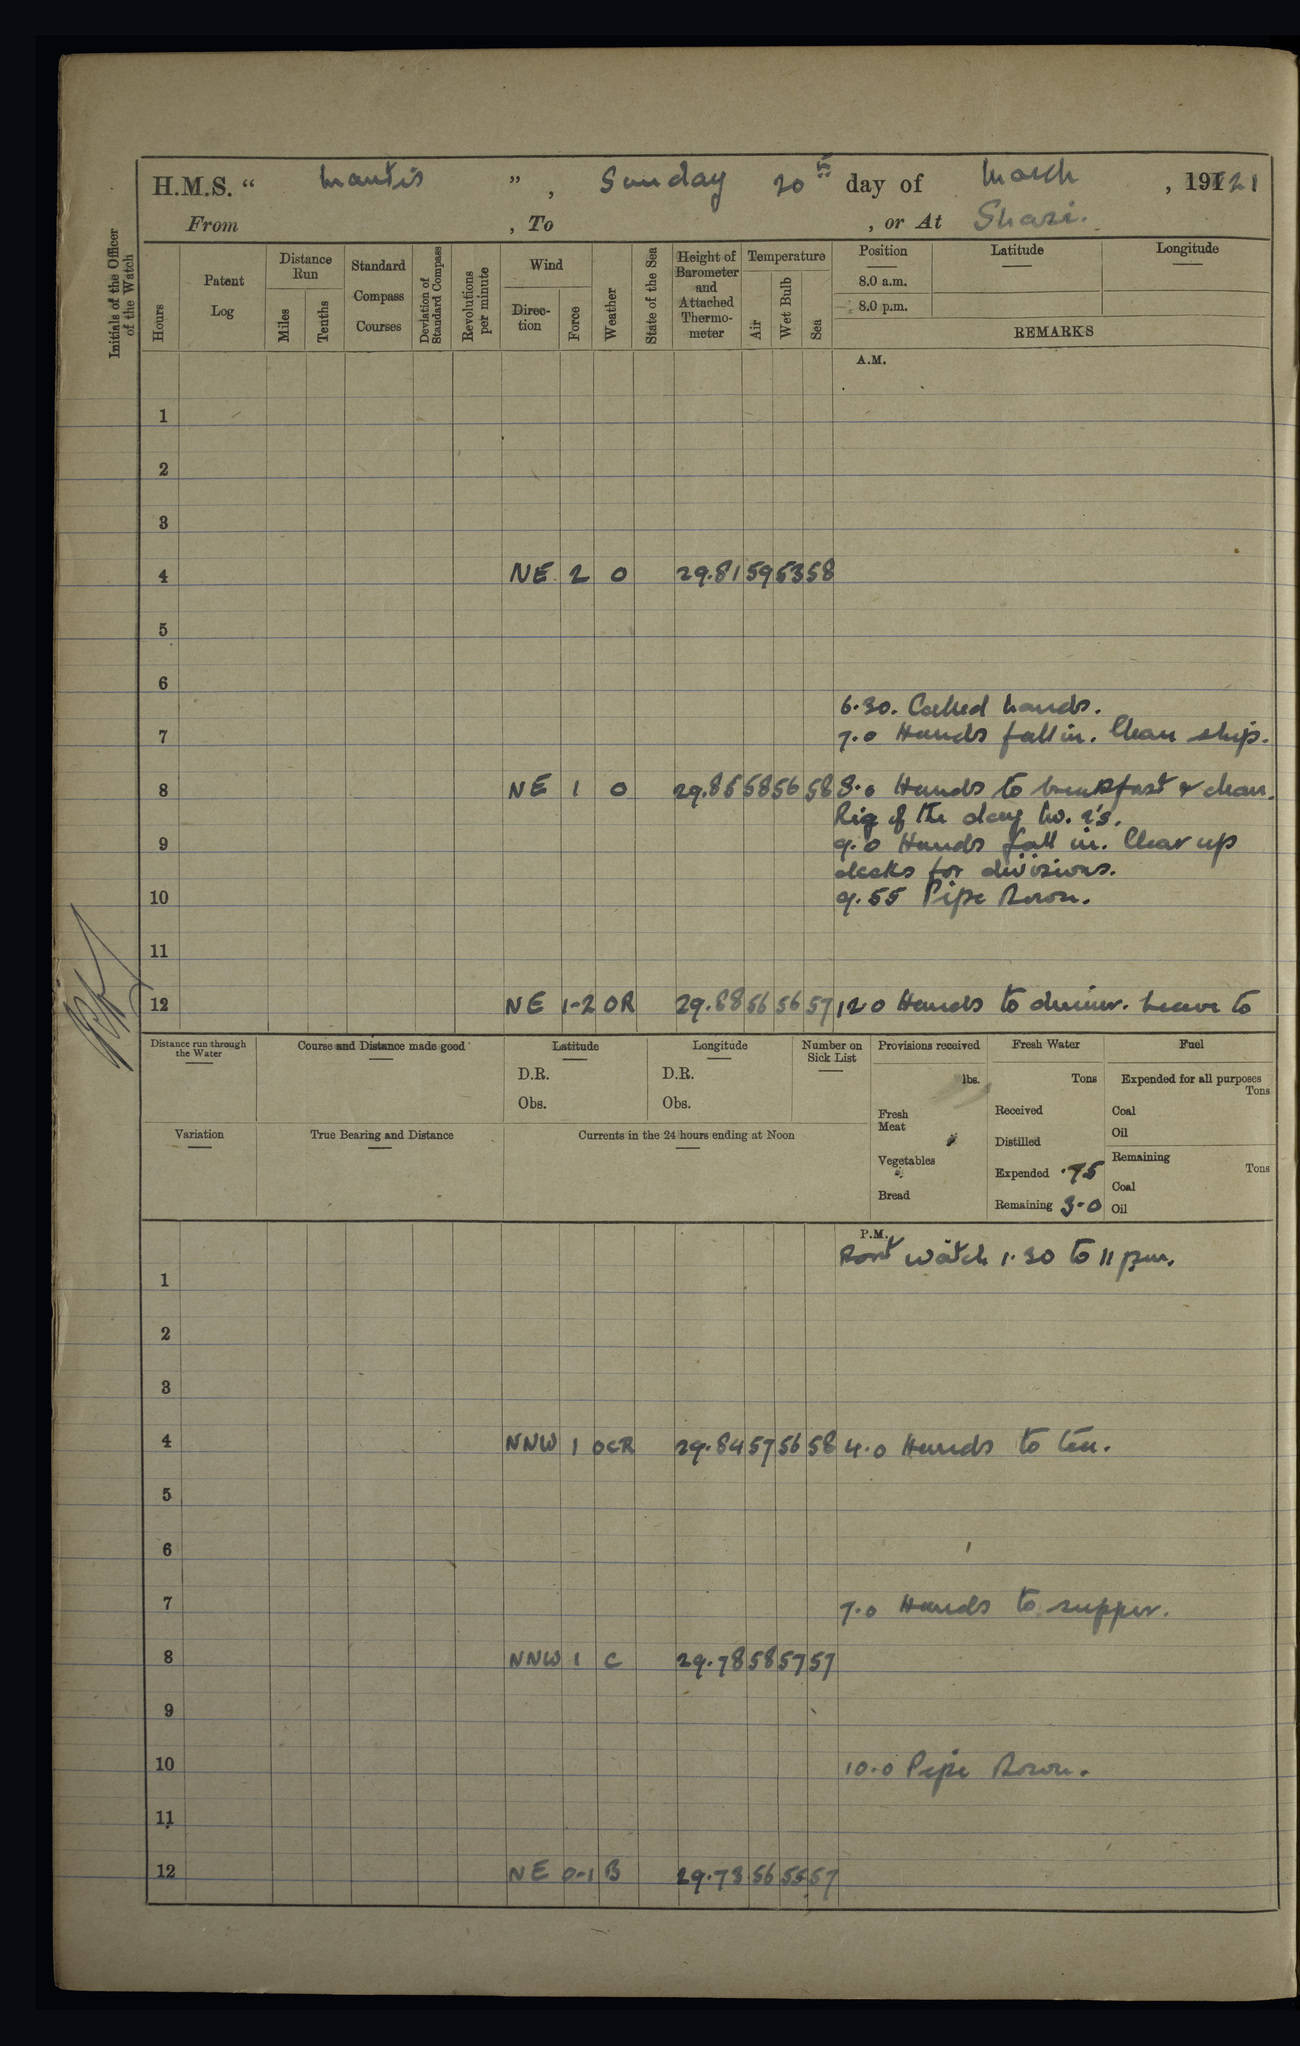 H.M.S. " Mantis " , Sunday 20th day of March , 1921
From , To , or At Shasi.
Initials of the Officer of the Watch
Hours
Patent Log
Distance Run
Miles
Tenths
Standard Compass Courses
Deviation of Standard Compass
Revolutions per minute
Wind
Direction
Force
Weather
State of the Sea
Height of Barometer and Attached Thermometer
Temperature
Air
Wet Bulb
Sea
Position Latitude Longitude
8.0 a.m.
8.0 p.m.
REMARKS
A.M.
1
2
3
4 NE 2 O 29.81 59 53 58
5
6
6.30. Called hands.
7 7.0 Hands fall in. Clean ship.
8 NE 1 O 29.85 58 56 58 8.0 Hands to breakfast & clean.
Rig of the day No. 2's.
9 9.0 Hands fall in. Clear up
decks for divisions.
10 9.55 Pipe Down.
11
12 NE 1-2 OR 29.88 56 56 57 12.0 Hands to dinner. Leave to
Distance run through the Water
Course and Distance made good
Latitude
D.R.
Obs.
Longitude
D.R.
Obs.
Number on Sick List
Provisions received
lbs.
Fresh Meat
Vegetables
Bread
Fresh Water
Tons
Received
Distilled
Expended .75
Remaining 3.0
Fuel
Expended for all purposes
Tons
Coal
Oil
Remaining
Tons
Coal
Oil
Variation
True Bearing and Distance
Currents in the 24 hours ending at Noon
P.M.
Port watch 1.30 to 11 pm.
1
2
3
4 NNW 1 OCR 29.84 57 56 58 4.0 Hands to tea.
5
6
7 7.0 Hands to supper.
8 NNW 1 C 29.78 58 57 57
9
10 10.0 Pipe Down.
11
12 NE 0-1 B 29.73 56 55 57